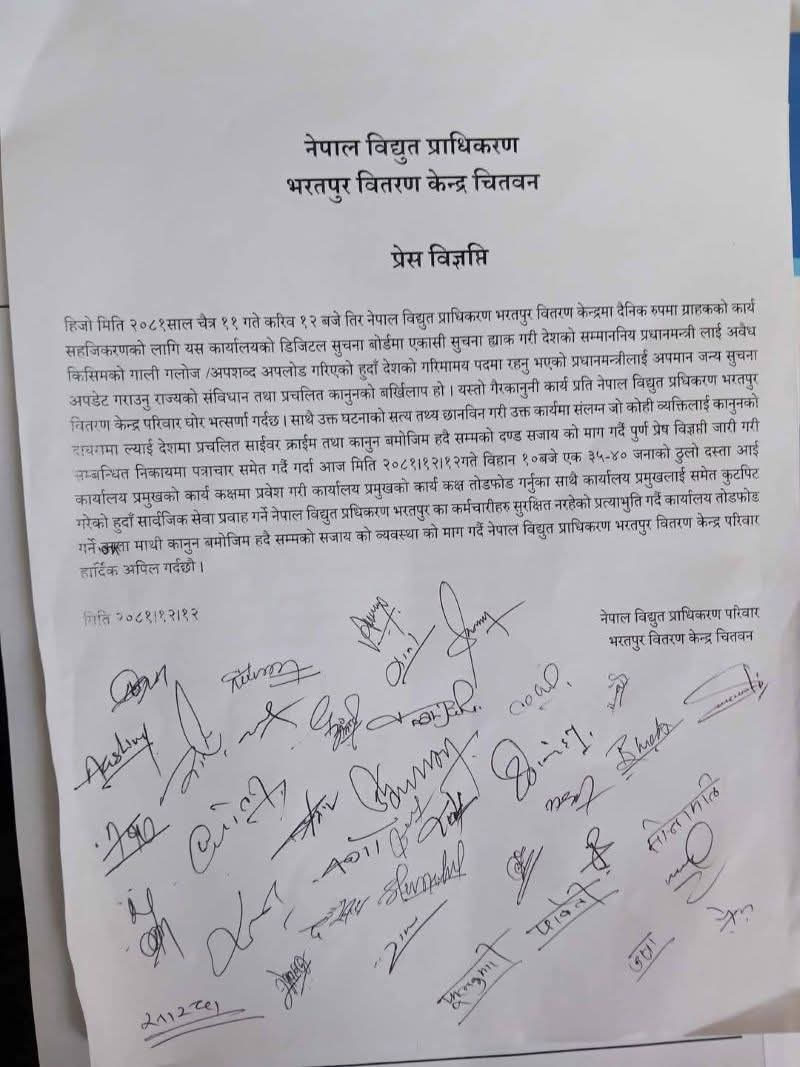 नेपाल विद्युत प्राधिकरण
भरतपुर वितरण केन्द्र चितवन
प्रेस विज्ञप्ति
हिजो मिति २०८१साल चैत्र ११ गते करिव १२ बजे तिर नेपाल विद्युत प्राधिकरण भरतपुर वितरण केन्द्रमा दैनिक रुपमा ग्राहकको कार्य
सहजिकरणको लागि यस कार्यालयको डिजिटल सुचना बोर्डमा एकासी सुचना ह्याक गरी देशको सम्माननिय प्रधानमन्त्री लाई अवैध
किसिमको गाली गलोज /अपशव्द अपलोड गरिएको हुदाँ देशको गरिमामय पदमा रहनु भएको प्रधानमन्त्रीलाई अपमान जन्य सुचना
अपडेट गराउनु राज्यको संविधान तथा प्रचलित कानुनको बर्खिलाप हो । यस्तो गैरकानुनी कार्य प्रति नेपाल विद्युत प्रधिकरण भरतपुर
वितरण केन्द्र परिवार घोर भत्सर्णा गर्दछ । साथै उक्त घटनाको सत्य तथ्य छानविन गरी उक्त कार्यमा संलग्न जो कोही व्यक्तिलाई कानुनको
दायरामा ल्याई देशमा प्रचलित साईवर क्राईम तथा कानुन बमोजिम हदै सम्मको दण्ड सजाय को माग गर्दै पुर्ण प्रेष विज्ञप्ती जारी गरी
सम्बन्धित निकायमा पत्राचार समेत गर्दै गर्दा आज मिति २०८१।१२।१२गते विहान १०बजे एक ३५-४० जनाको ठुलो दस्ता आई
कार्यालय प्रमुखको कार्य कक्षमा प्रवेश गरी कार्यालय प्रमुखको कार्य कक्ष तोडफोड गर्नुका साथै कार्यालय प्रमुखलाई समेत कुटपिट
गरेको हुदाँ सार्वजिक सेवा प्रवाह गर्ने नेपाल विद्युत प्राधिकरण भरतपुर का कर्मचारीहरु सुरक्षित नरहेको प्रत्याभुति गर्दै कार्यालय तोडफोड
गर्ने माथी कानुन बमोजिम हदै सम्मको सजाय को व्यवस्था को माग गर्दै नेपाल विद्युत प्राधिकरण भरतपुर वितरण केन्द्र परिवार
हार्दिक अपिल गर्दछौ ।
मिति २०८१।१२।१२
नेपाल विद्युत प्राधिकरण परिवार
भरतपुर वितरण केन्द्र चितवन